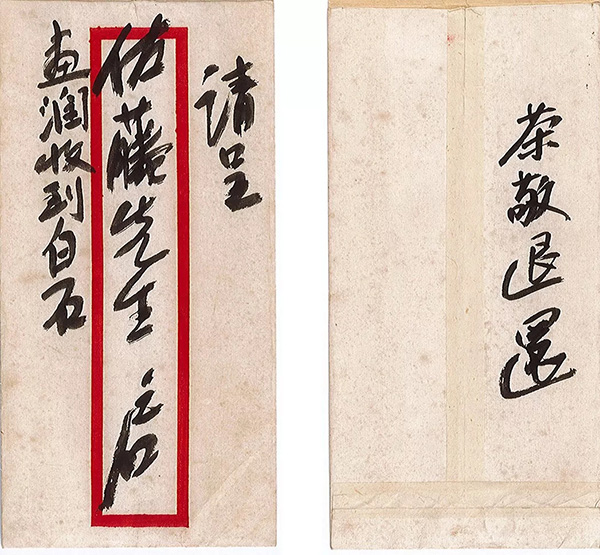 请呈
佐藤先生 启
画润收到白石
茶敬退還